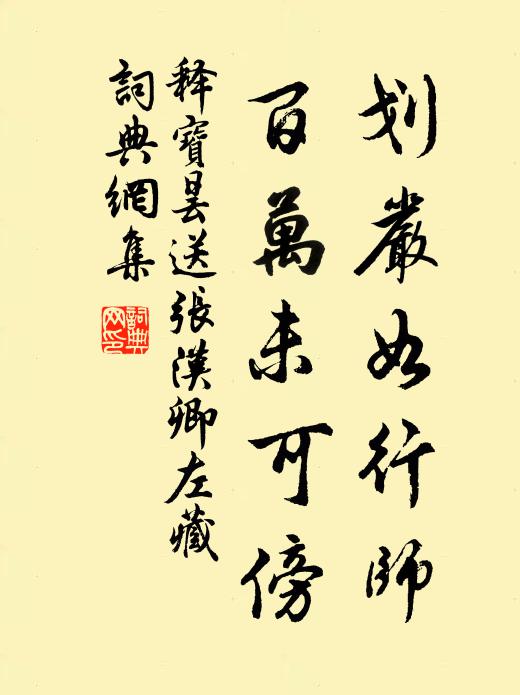 划嚴如行師
百萬未可傍
释寶曇送張漢卿左藏
詞典網集
詞典网印